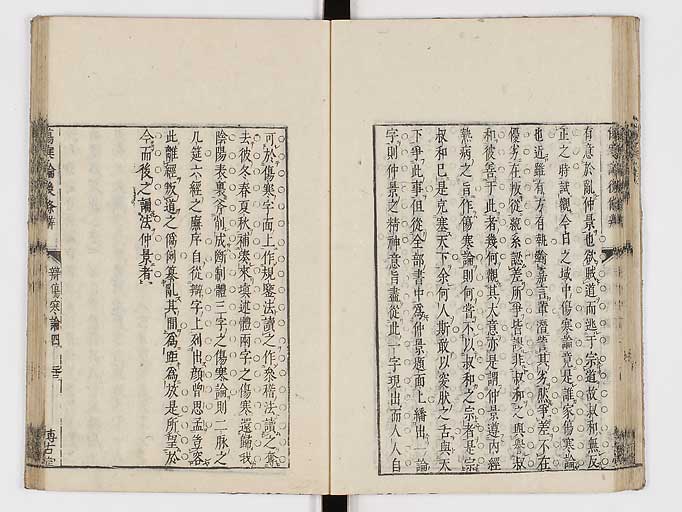 有意於亂仲景也欲賊道而逃于宗道故叔和無反
正之時試觀今日之域中傷寒論竟是誰家傷寒論
也近雖有方有執喻嘉言輩澄嘗其劣然爭差不在
優劣在叛從統系認差所爭皆誤非叔和之與譽叔
和彼善于此者幾何觀其大意亦是謂仲景道內經
熱病之旨作傷寒論則何嘗不以叔和之宗者是宗
叔和已是充塞天下余何人斯敢以突肰之舌與天
下爭此事但從全部書中為仲景題面上繙出一論
字則仲景之精神意旨盡從此一字現出而人人自
可於傷寒字面上作規鑒法讀之作衆稽法讀之奪
去彼冬春夏秋補寒來填述體兩字之傷寒還歸我
陰陽表裏斧削成斷制體三字之傷寒論則二脉之
几筵六經之廉序自從辯字上列出顔曾思孟豈容
此離經叛道之僞例纂亂其間為距為放是所望於
今而後之誦法仲景者
辯傷寒論四